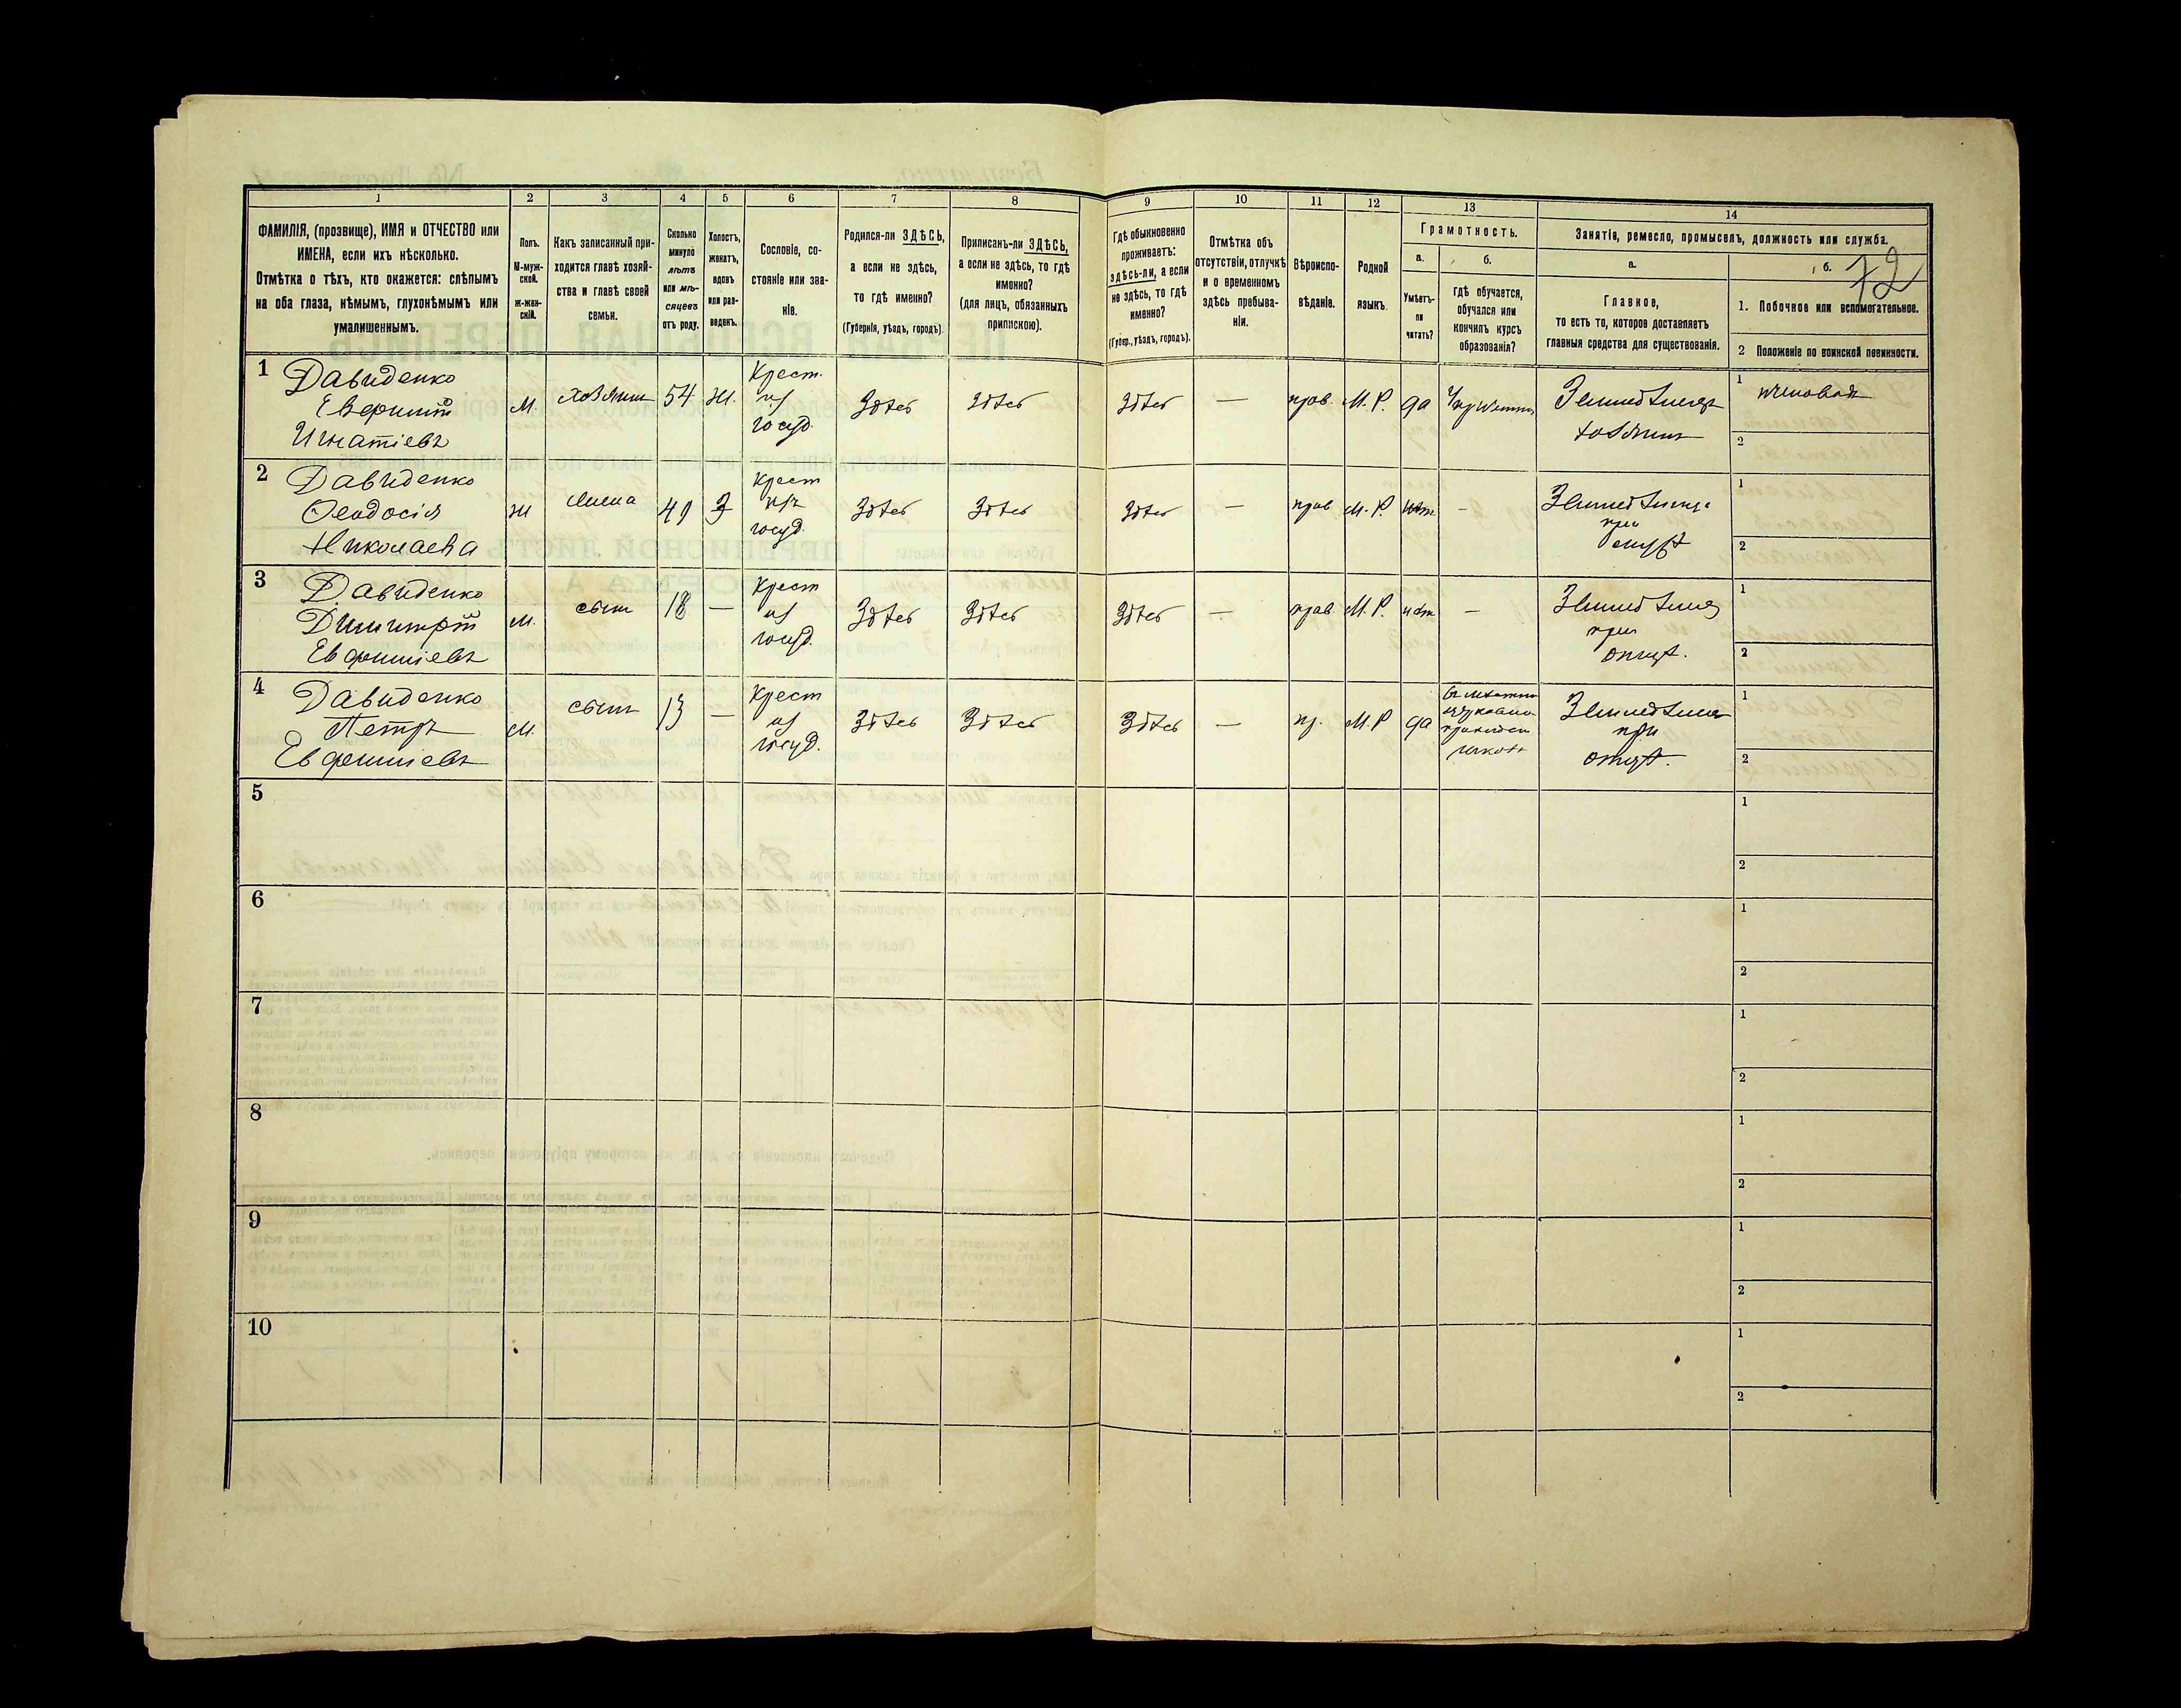 72
1 2 3 4 5 6 7 8 9 10 11 12 13 14
ФАМИЛІЯ, (прозвище), ИМЯ и ОТЧЕСТВО или
ИМЕНА, если ихъ нѣсколько.
Отмѣтка о тѣхъ, кто окажется: слѣпымъ
на оба глаза, нѣмымъ, глухонѣмымъ или
умалишеннымъ.
Полъ.
М-муж-
ской.
Ж-жен-
скій.
Какъ записанный при-
ходится главѣ хозяй-
ства и главѣ своей
семьи.
Сколько
минуло
лѣтъ
или мѣ-
сяцевъ
отъ роду.
Холостъ,
женатъ,
вдовъ
или раз-
веденъ.
Сословіе, со-
стояніе или зва-
ніе.
Родился-ли ЗДѢСЬ,
а если не здѣсь,
то гдѣ именно?
(Губернія, уѣздъ, городъ).
Приписанъ-ли ЗДѢСЬ,
а если не здѣсь, то гдѣ
именно?
(для лицъ, обязанныхъ
припискою).
Гдѣ обыкновенно
проживаетъ:
здѣсь-ли, а если
не здѣсь, то гдѣ
именно?
(Губер., уѣздъ, городъ).
Отмѣтка объ
отсутствіи, отлучкѣ
и о временномъ
здѣсь пребыва-
ніи.
Вѣроиспо-
вѣданіе.
Родной
языкъ.
Грамотность.
а.
Умѣетъ-
ли
читать?
б.
Гдѣ обучается,
обучался или
кончилъ курсъ
образованія?
Занятіе, ремесло, промыселъ, должность или служба.
а.
Главное,
то есть то, которое доставляетъ
главныя средства для существованія.
б.
1. Побочное или вспомогательное.
2 Положеніе по воинской повинности.
1
Давиденко
Евфимій
Игнатіевъ
М.
хозяинъ
54
Ж.
Крест.
изъ
госуд.
Здѣсь
Здѣсь
Здѣсь
—
прав.
М. Р.
да
Земледѣлецъ
хозяинъ
1
2
2
Давиденко
Феодосія
Николаева
Ж
жена
49
З
Крест
изъ
госуд.
Здѣсь
Здѣсь
Здѣсь
—
прав
М. Р.
нѣт
—
при
1
2
3
Давиденко
Димитрій
Евфиміевъ
М.
сынъ
18
—
Крест
из
госуд.
Здѣсь
Здѣсь
Здѣсь
—
прав
М. Р.
нѣт
—
при
отцѣ.
1
2
4
Давиденко
Петръ
Евфиміевъ
М.
сынъ
13
—
Крест
из
госуд.
Здѣсь
Здѣсь
Здѣсь
—
пр.
М. Р
да
при
отцѣ.
1
2
5
1
2
6
1
2
7
1
2
8
1
2
9
1
2
10
1
2